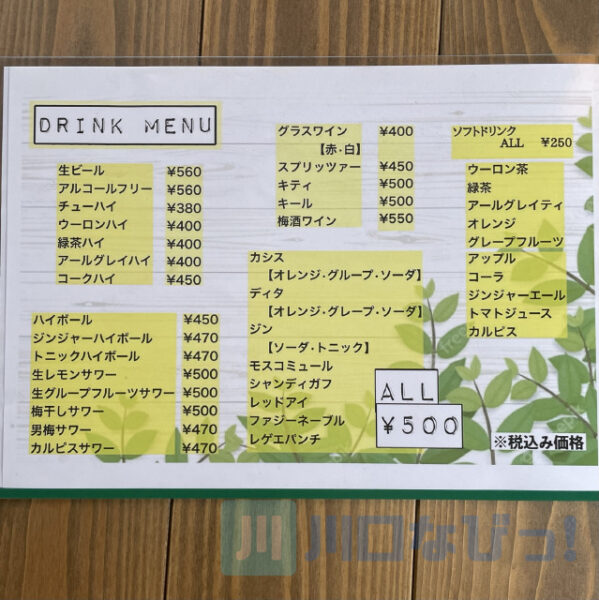 DRINK MENU
生ビール ¥560
アルコールフリー ¥560
チューハイ ¥380
ウーロンハイ ¥400
緑茶ハイ ¥400
アールグレイハイ ¥400
コークハイ ¥450
ハイボール ¥450
ジンジャーハイボール ¥470
トニックハイボール ¥470
生レモンサワー ¥500
生グループフルーツサワー ¥500
梅干しサワー ¥500
男梅サワー ¥470
カルピスサワー ¥470
グラスワイン ¥400
【赤・白】
スプリッツァー ¥450
キティ ¥500
キール ¥500
梅酒ワイン ¥550
カシス
【オレンジ・グループ・ソーダ】
ディタ
【オレンジ・グレープ・ソーダ】
ジン
【ソーダ・トニック】
モスコミュール
シャンディガフ
レッドアイ
ファジーネーブル
レゲエパンチ
ALL
¥500
ソフトドリンク
ALL ¥250
ウーロン茶
緑茶
アールグレイティ
オレンジ
グレープフルーツ
アップル
コーラ
ジンジャーエール
トマトジュース
カルピス
※税込み価格
川 川口なびっ!